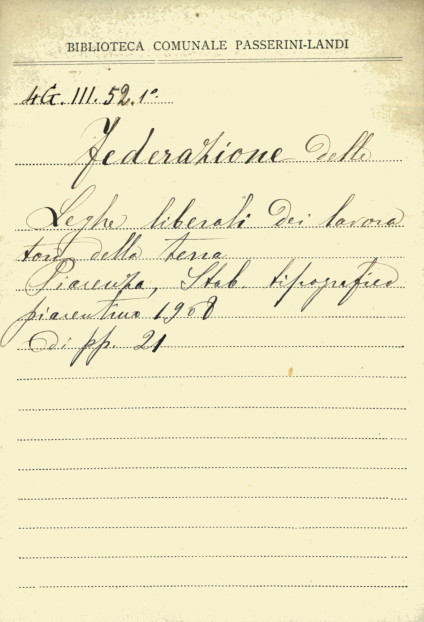 BIBLIOTECA COMUNALE PASSERINI-LANDI
4G. III. 52. 1º.
Federazione delle
Leghe liberali dei lavora
tori della terra
Piacenza, Stab. tipografico
piacentino 1908
di pp. 21